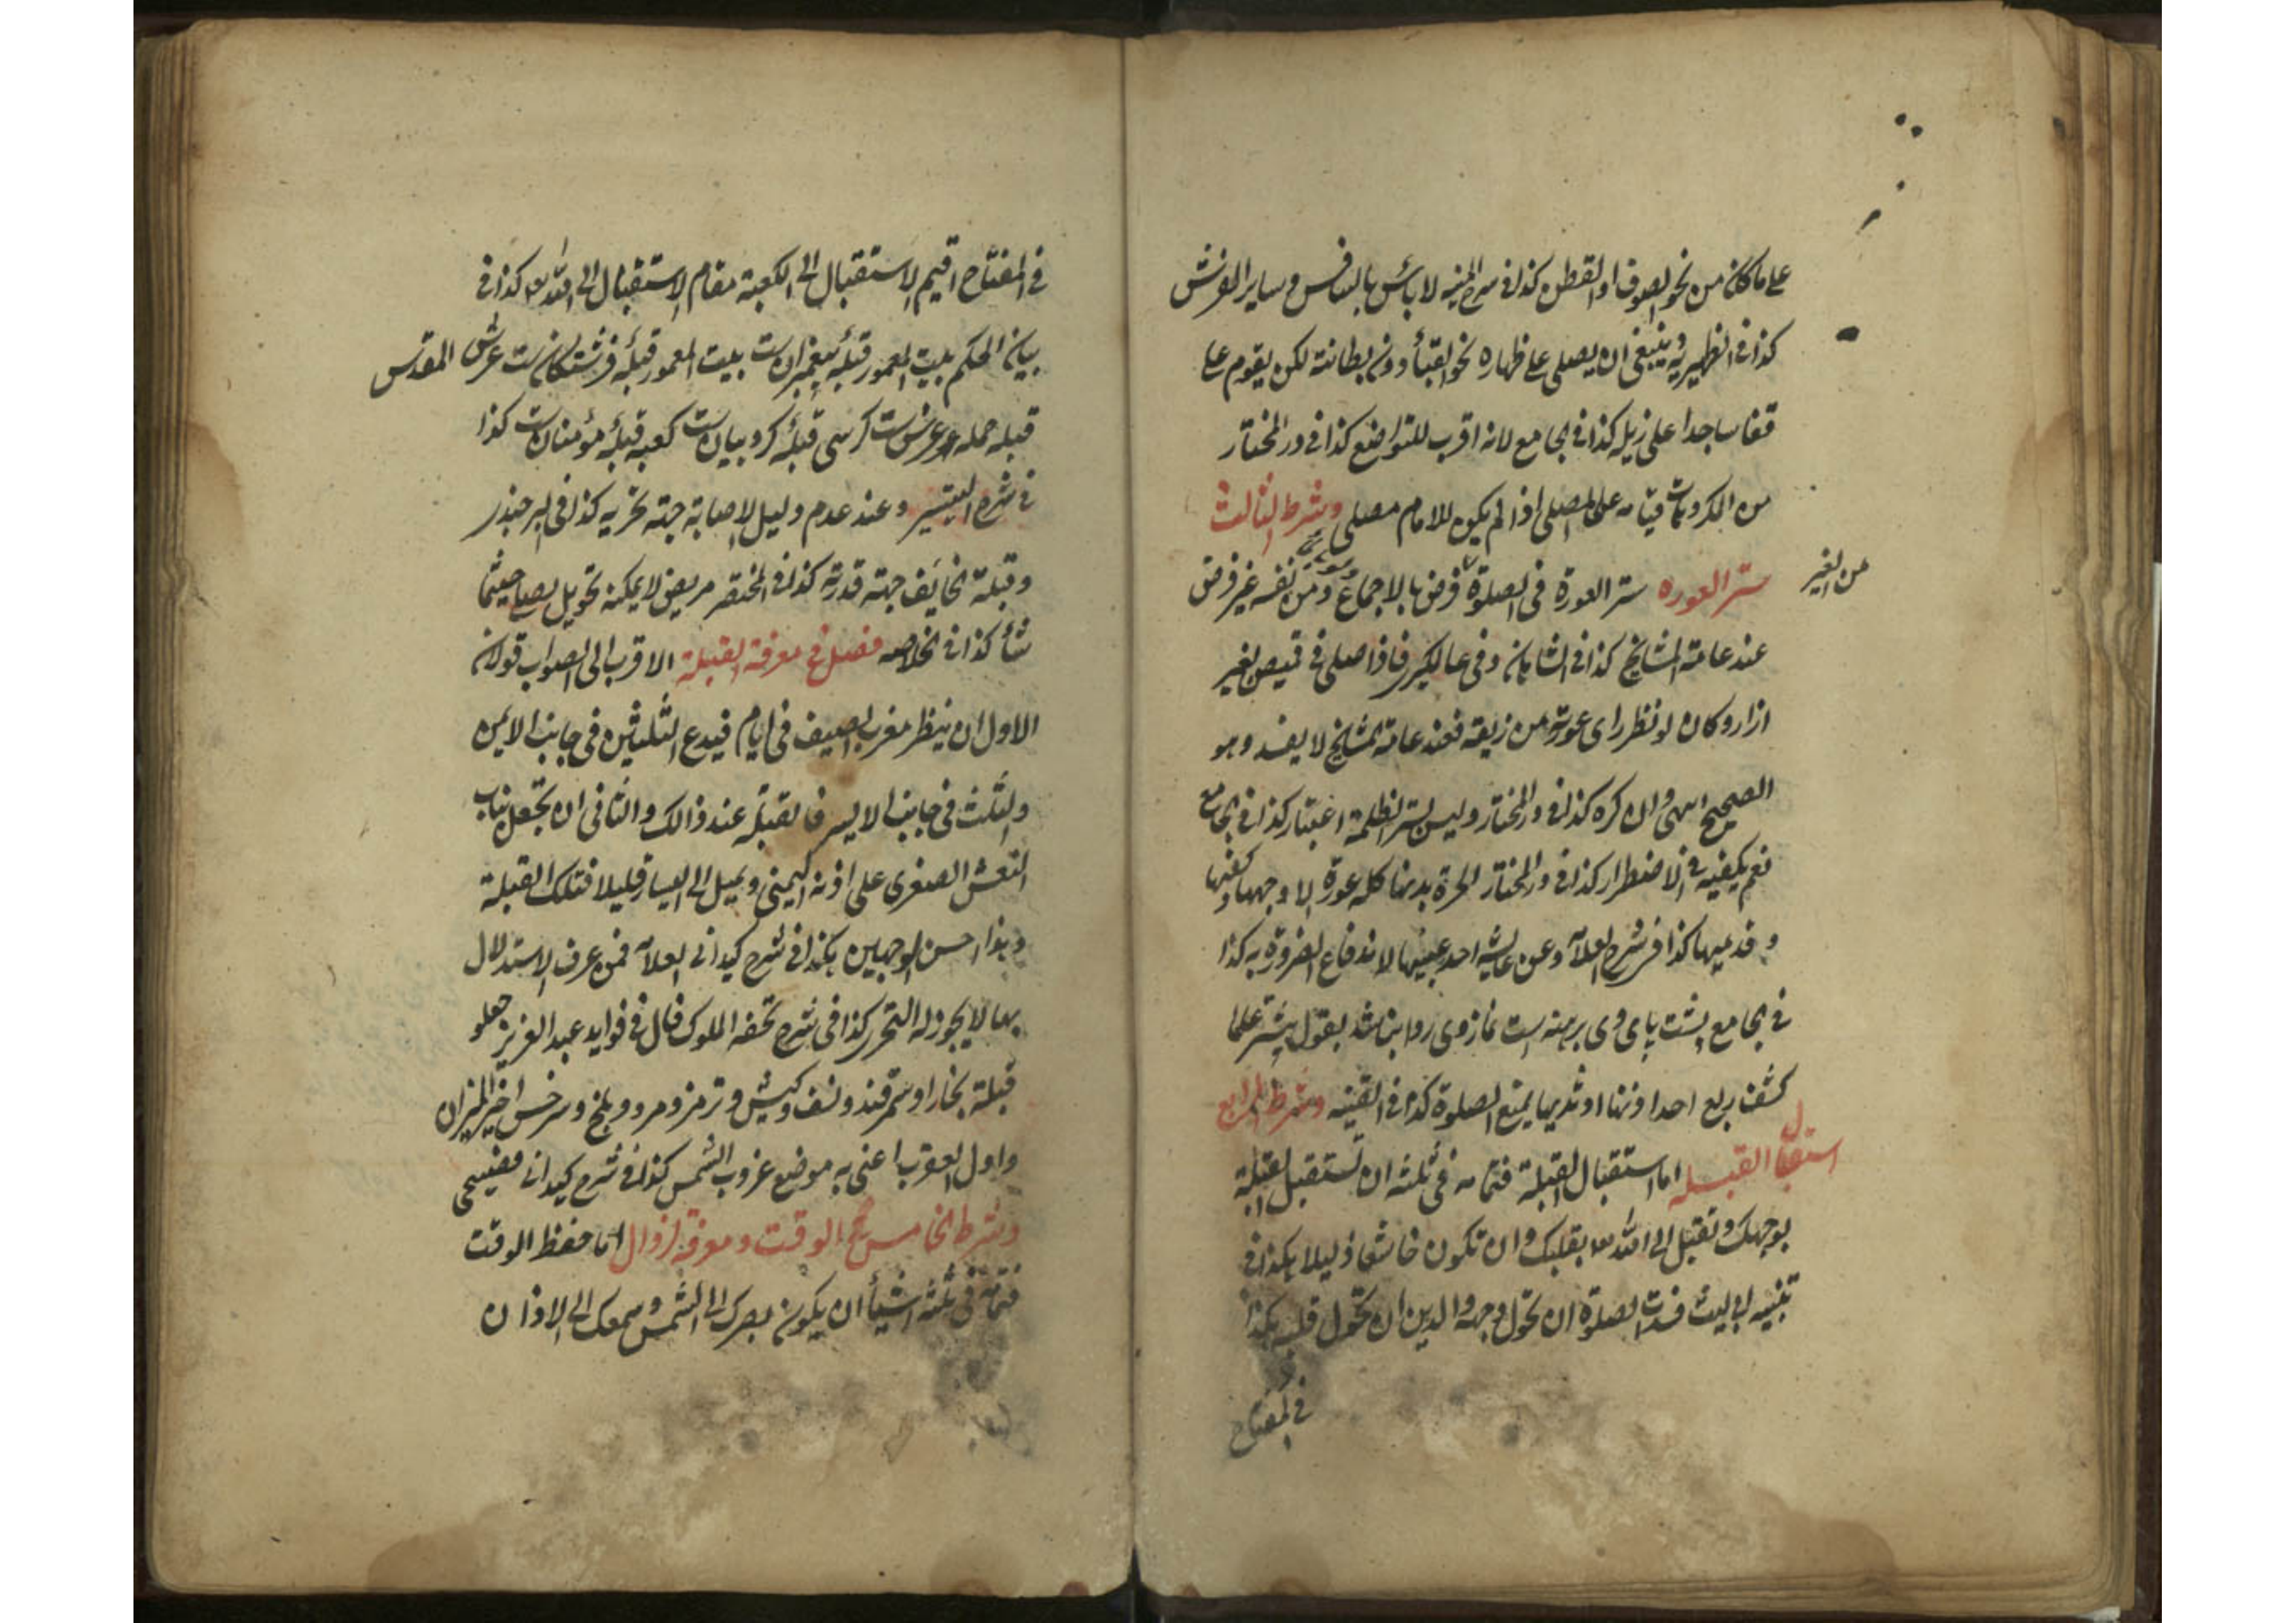 علی ما کان من نحو الصوف او القطن کذا فی شرح المنیه لا باس بالنفس و سایر الفرش
کذا فی الظهیریه و ینبغی ان یصلی علی ظهاره نحو القبأ دون بطانته لکن یقوم علی
قفا ساجدا علی ذیله کذا فی الجامع لانه اقرب للتواضع کذا فی در المختار
من المکروهات قیامه علی المصلی اذا لم یکون للامام مصلی و شرط الثالث
ستر العوره ستر العورة فی الصلوة فرض بالاجماع و من نفسه غیر فرض
من الغیر
عند عامة المشایخ کذا فی الشاهان و فی عالمکیری فاذا صلی فی قمیص بغیر
ازار و کان لو نظر رای عورته من زیقه فعند عامة المشایخ لا یفسد و هو
الصحیح انتهی وان کره کذا فی در المختار و لیس لستر الظلمة اعتبار کذا فی الجامع
نعم یکفیه فی الاضطرار کذا فی در المختار الحرة بدنها کله عورة الا وجهها و کفیها
و قدمیها کذا فی شرح العلآ و عن عایشه احد عینیها لاندفاع الضرورة به کذا
فی الجامع پشت پای وی برهنه است نماز وی روا بناشد بقول بیشتر علما
کشف ربع احد اذنها او ثدیها یمنع الصلوة کذا فی القنیه و شرط الرابع
استقبال القبله اما استقبال القبلة فتمامه فی ثلثه ان تستقبل القبلة
بوجهک و تقبل الی الله تعا بقلبک و ان تکون خاشعا ذلیلا هکذا فی
تنبیه ابی لیث فسدت الصلوة ان تحول وجهه والدین ان تحول قلبه هکذا
فی المفتاح
فی المفتاح اقیم الاستقبال الی الکعبة مقام الاستقبال الی الله تعا کذا فی
بیان الحکم بیت المعمور قبلهٔ پیغمبران ست بیت المعمور قبلهٔ فرشتکان ست عرش المقدس
قبله حمله عرش ست کرسی قبلهٔ کروبیان ست کعبه قبلهٔ مؤمنان ست کذا
فی شرح التیسیر و عند عدم دلیل الاصابة جهته تحریه کذا فی البرجندر
و قبلة الخایف جهة قدرته کذا فی المختصر مریض لا یمکنه تحویل یصلی حیثما
شأ کذا فی الخلاصه فصل فی معرفة القبلة الاقرب الی الصواب قولان
الاول ان ینظر مغرب الصیف فی ایام فیدع الثلثین فی جانب الایمن
و الثلث فی جانب الایسر فالقبلة عند ذالک و الثانی ان یجعل بنات
النعش الصغری علی اذنه الیمنی و یمیل الی الیسار قلیلا فتلک القبلة
و هذا احسن الوجهین هکذا فی شرح کیدانی العلآ فمن عرف الاستدلال
بها لا یجوز له التحری کذا فی شرح تحفه الملوک قال فی فواید عبد العزیز جعلو
قبلة بخارا و سمرقند و نسف و کیش و ترمز و مرو و بلخ و سرخس اخیر المیزان
و اول العقرب اعنی به موضع غروب الشمس کذا فی شرح کیدانی
و شرط الخامس الوقت و معرفة الزوال اما حفظ الوقت
فتمامه فی ثلثه اشیأ ان یکون بصرک الی الشمس و سمعک الی الاذان